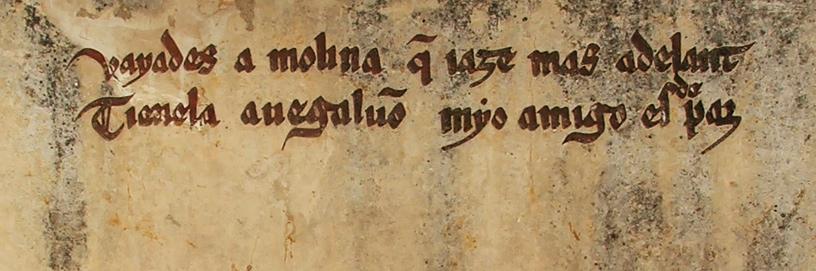 vayades a molina q̄ iaze mas adelant
Tienela auegaluō myo amigo es de paz